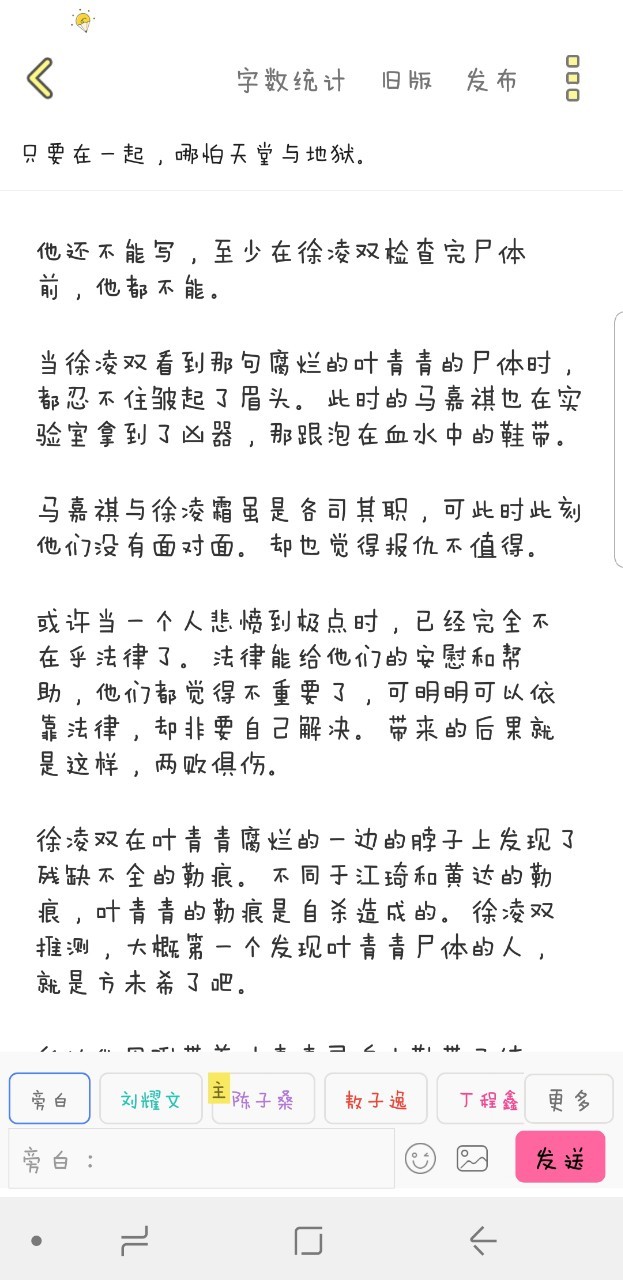 字数统计 旧版 发布
只要在一起，哪怕天堂与地狱。
他还不能写，至少在徐凌双检查完尸体
前，他都不能。
当徐凌双看到那句腐烂的叶青青的尸体时，
都忍不住皱起了眉头。此时的马嘉祺也在实
验室拿到了凶器，那跟泡在血水中的鞋带。
马嘉祺与徐凌霜虽是各司其职，可此时此刻
他们没有面对面。却也觉得报仇不值得。
或许当一个人悲愤到极点时，已经完全不
在乎法律了。法律能给他们的安慰和帮
助，他们都觉得不重要了，可明明可以依
靠法律，却非要自己解决。带来的后果就
是这样，两败俱伤。
徐凌双在叶青青腐烂的一边的脖子上发现了
残缺不全的勒痕。不同于江琦和黄达的勒
痕，叶青青的勒痕是自杀造成的。徐凌双
推测，大概第一个发现叶青青尸体的人，
就是方未希了吧。
旁白 刘耀文 主 陈子桑 敖子逸 丁程鑫 更多
旁白： 发送